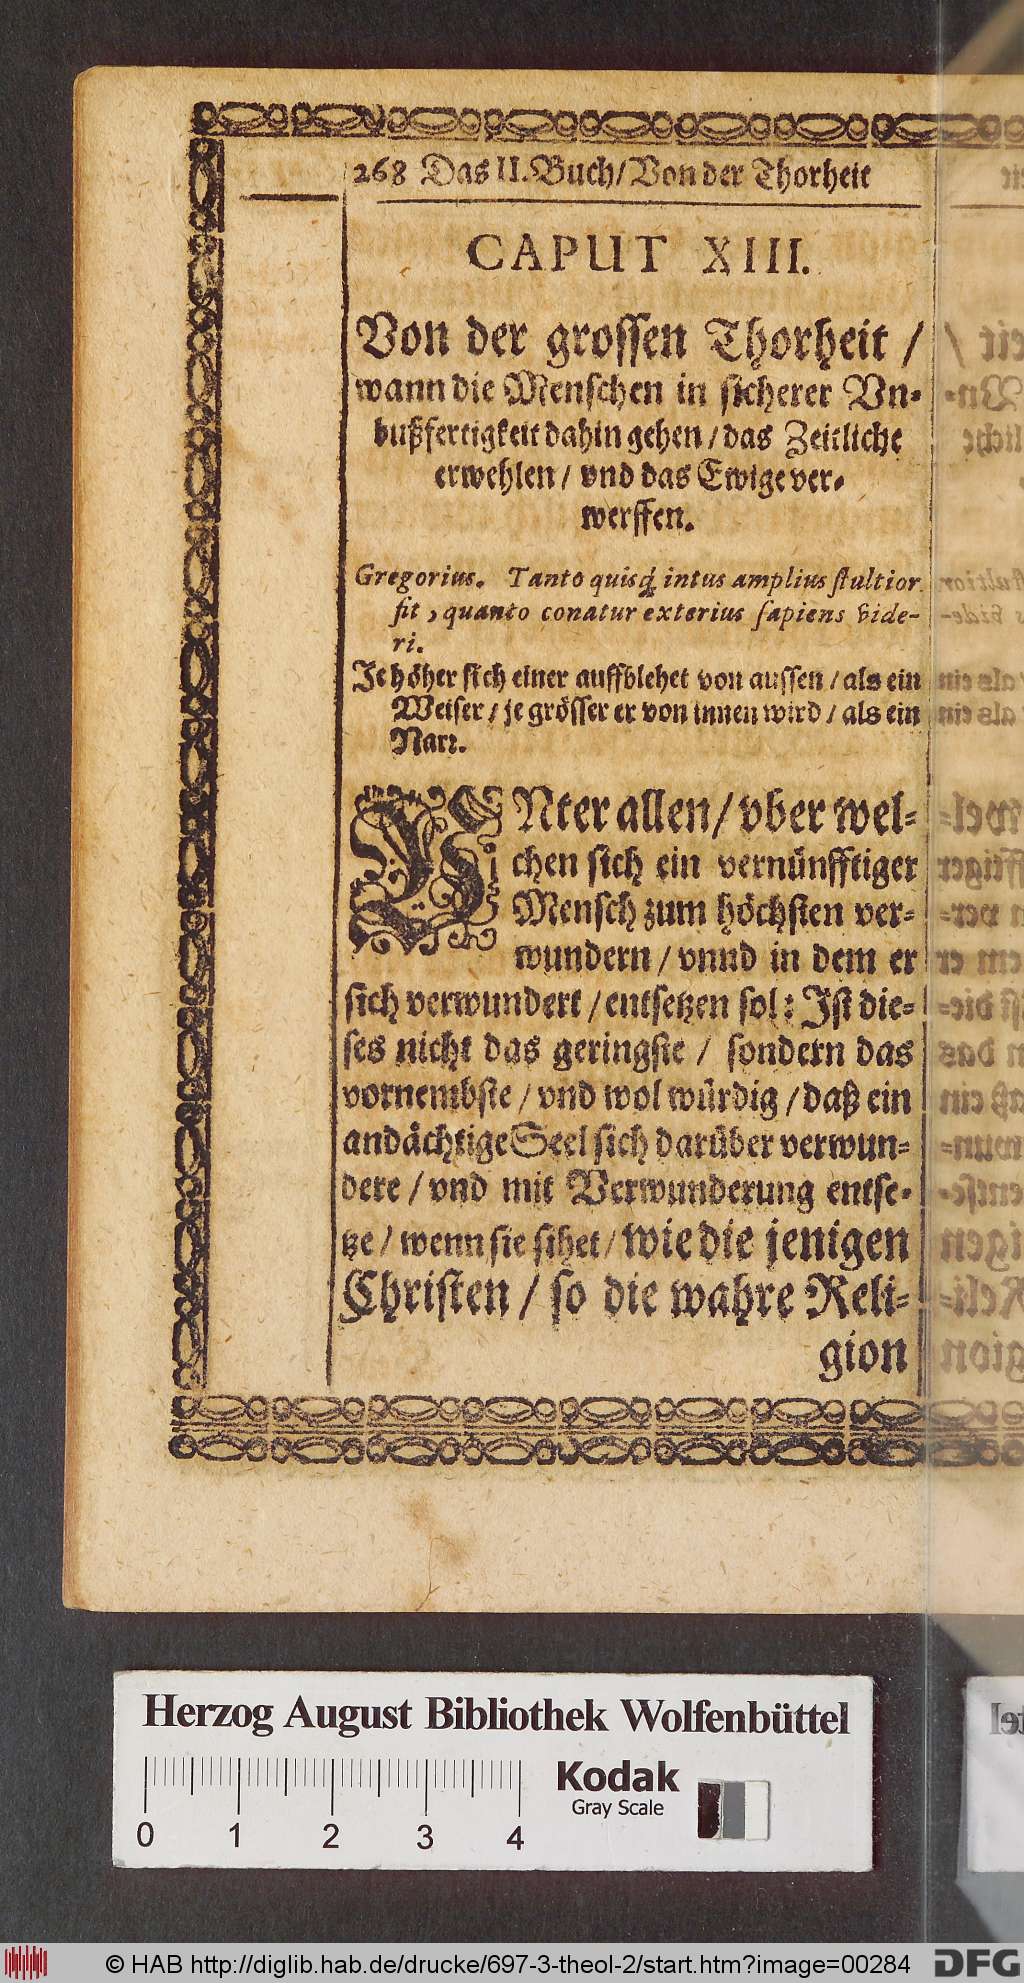 268 Das II. Buch/ Von der Thorheit
CAPUT XIII.
Von der grossen Thorheit /
wann die Menschen in sicherer Vn-
bußfertigkeit dahin gehen / das Zeitliche
erwehlen / vnd das Ewige ver-
werffen.
Gregorius. Tanto quisq; intus amplius stultior
fit, quanto conatur exterius sapiens vide-
ri.
Je höher sich einer auffblehet von aussen / als ein
Weiser / je grösser er von innen wird / als ein
Narr.
VNter allen / vber wel-
chen sich ein vernünfftiger
Mensch zum höchsten ver-
wundern / vnnd in dem er
sich verwundert / entsetzen sol: Ist die-
ses nicht das geringste / sondern das
vornembste / vnd wol würdig / daß ein
andächtige Seel sich darüber verwun-
dere / vnd mit Verwunderung entse-
tze / wenn sie sihet / wie die jenigen
Christen / so die wahre Reli-
gion
Herzog August Bibliothek Wolfenbüttel
Kodak
Gray Scale
0 1 2 3 4
© HAB http://diglib.hab.de/drucke/697-3-theol-2/start.htm?image=00284 DFG